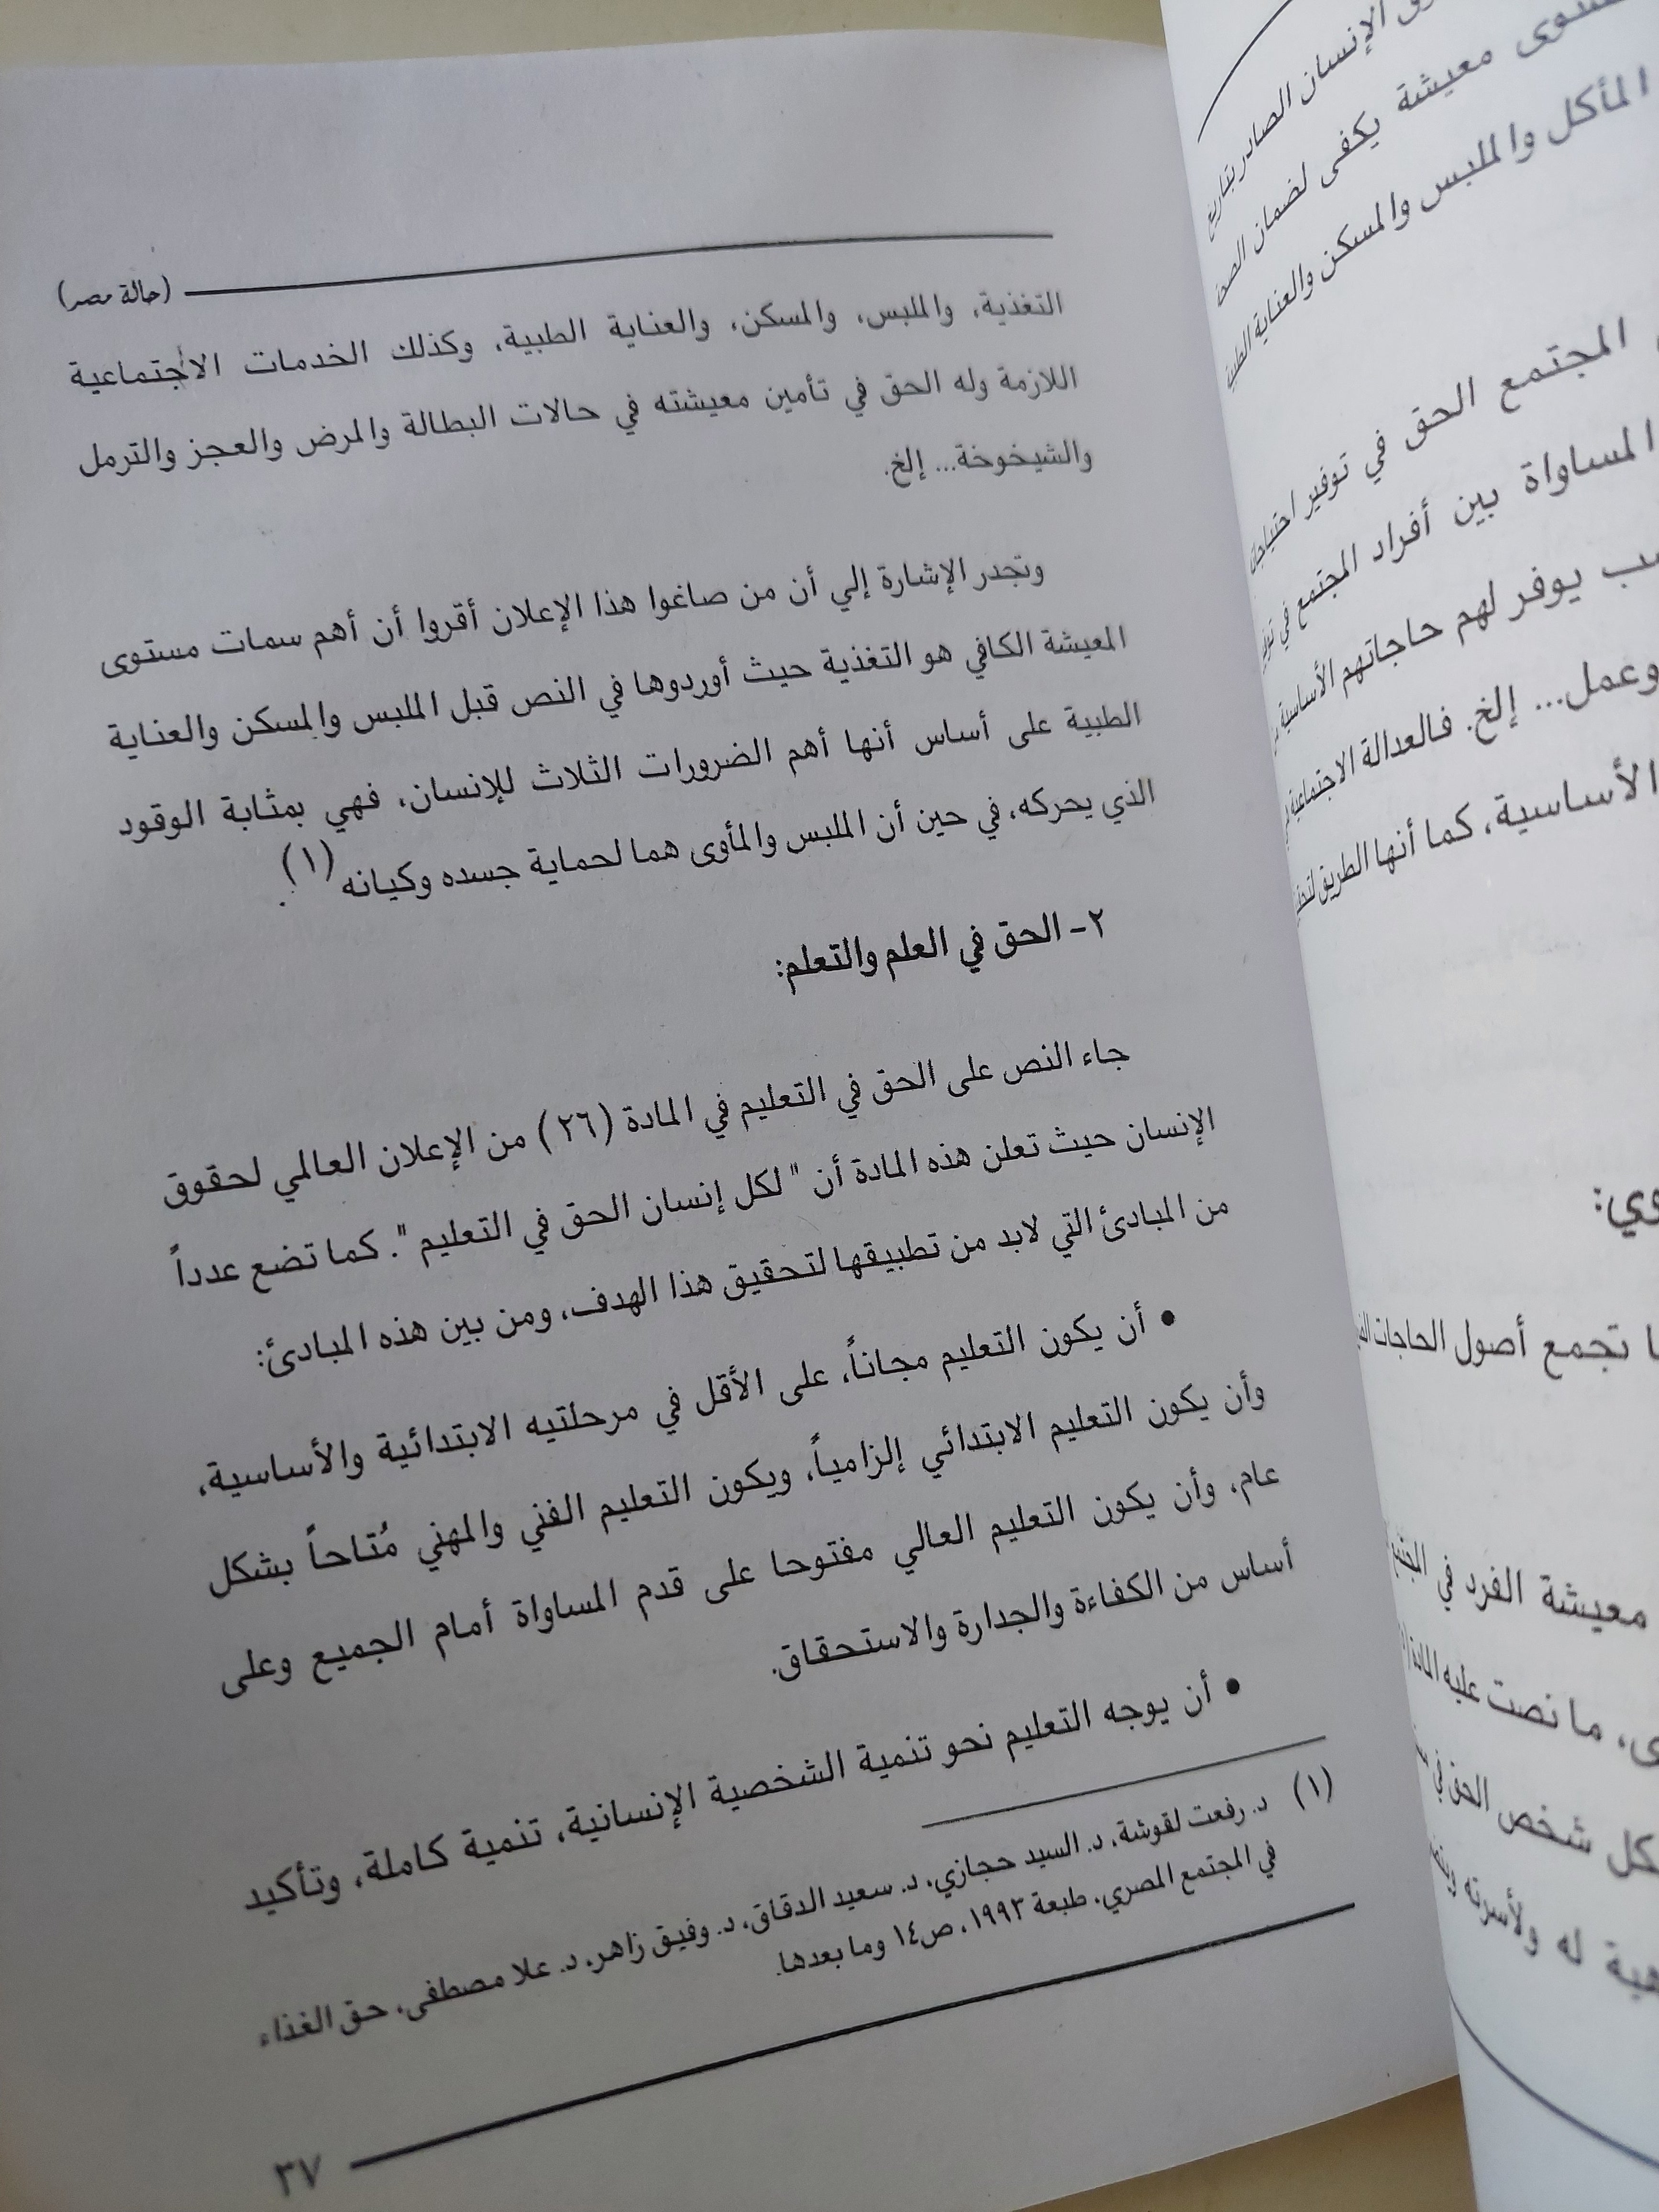 (حالة مصر)
التغذية، والملبس، والمسكن، والعناية الطبية، وكذلك الخدمات الاجتماعية
اللازمة وله الحق في تأمين معيشته في حالات البطالة والمرض والعجز والترمل
والشيخوخة... إلخ.
وتجدر الإشارة إلي أن من صاغوا هذا الإعلان أقروا أن أهم سمات مستوى
المعيشة الكافي هو التغذية حيث أوردوها في النص قبل الملبس والمسكن والعناية
الطبية على أساس أنها أهم الضرورات الثلاث للإنسان، فهي بمثابة الوقود
الذي يحركه، في حين أن الملبس والمأوى هما لحماية جسده وكيانه (١).
٢- الحق في العلم والتعلم:
جاء النص على الحق في التعليم في المادة (٢٦) من الإعلان العالمي لحقوق
الإنسان حيث تعلن هذه المادة أن " لكل إنسان الحق في التعليم ". كما تضع عدداً
من المبادئ التي لابد من تطبيقها لتحقيق هذا الهدف، ومن بين هذه المبادئ:
• أن يكون التعليم مجاناً، على الأقل في مرحلتيه الابتدائية والأساسية،
وأن يكون التعليم الابتدائي إلزامياً، ويكون التعليم الفني والمهني مُتاحاً بشكل
عام، وأن يكون التعليم العالي مفتوحا على قدم المساواة أمام الجميع وعلى
أساس من الكفاءة والجدارة والاستحقاق.
• أن يوجه التعليم نحو تنمية الشخصية الإنسانية، تنمية كاملة، وتأكيد
(١) د. رفعت لقوشة، د. السيد حجازي، د. سعيد الدقاق، د. وفيق زاهر، د. علا مصطفى، حق الغذاء
في المجتمع المصري، طبعة ١٩٩٣، ص١٤ وما بعدها.
٣٧
الإنسان الصادر بتاريخ
معيشة يكفى لضمان الصحة
المأكل والملبس والمسكن والعناية الطبية
المجتمع الحق في توفير احتياجات
المساواة بين أفراد المجتمع في
يوفر لهم حاجاتهم الأساسية
وعمل... إلخ. فالعدالة الاجتماعية
الأساسية، كما أنها الطريق
تجمع أصول الحاجات
معيشة الفرد في المجتمع
ما نصت عليه المادة
شخص الحق في
له ولأسرته